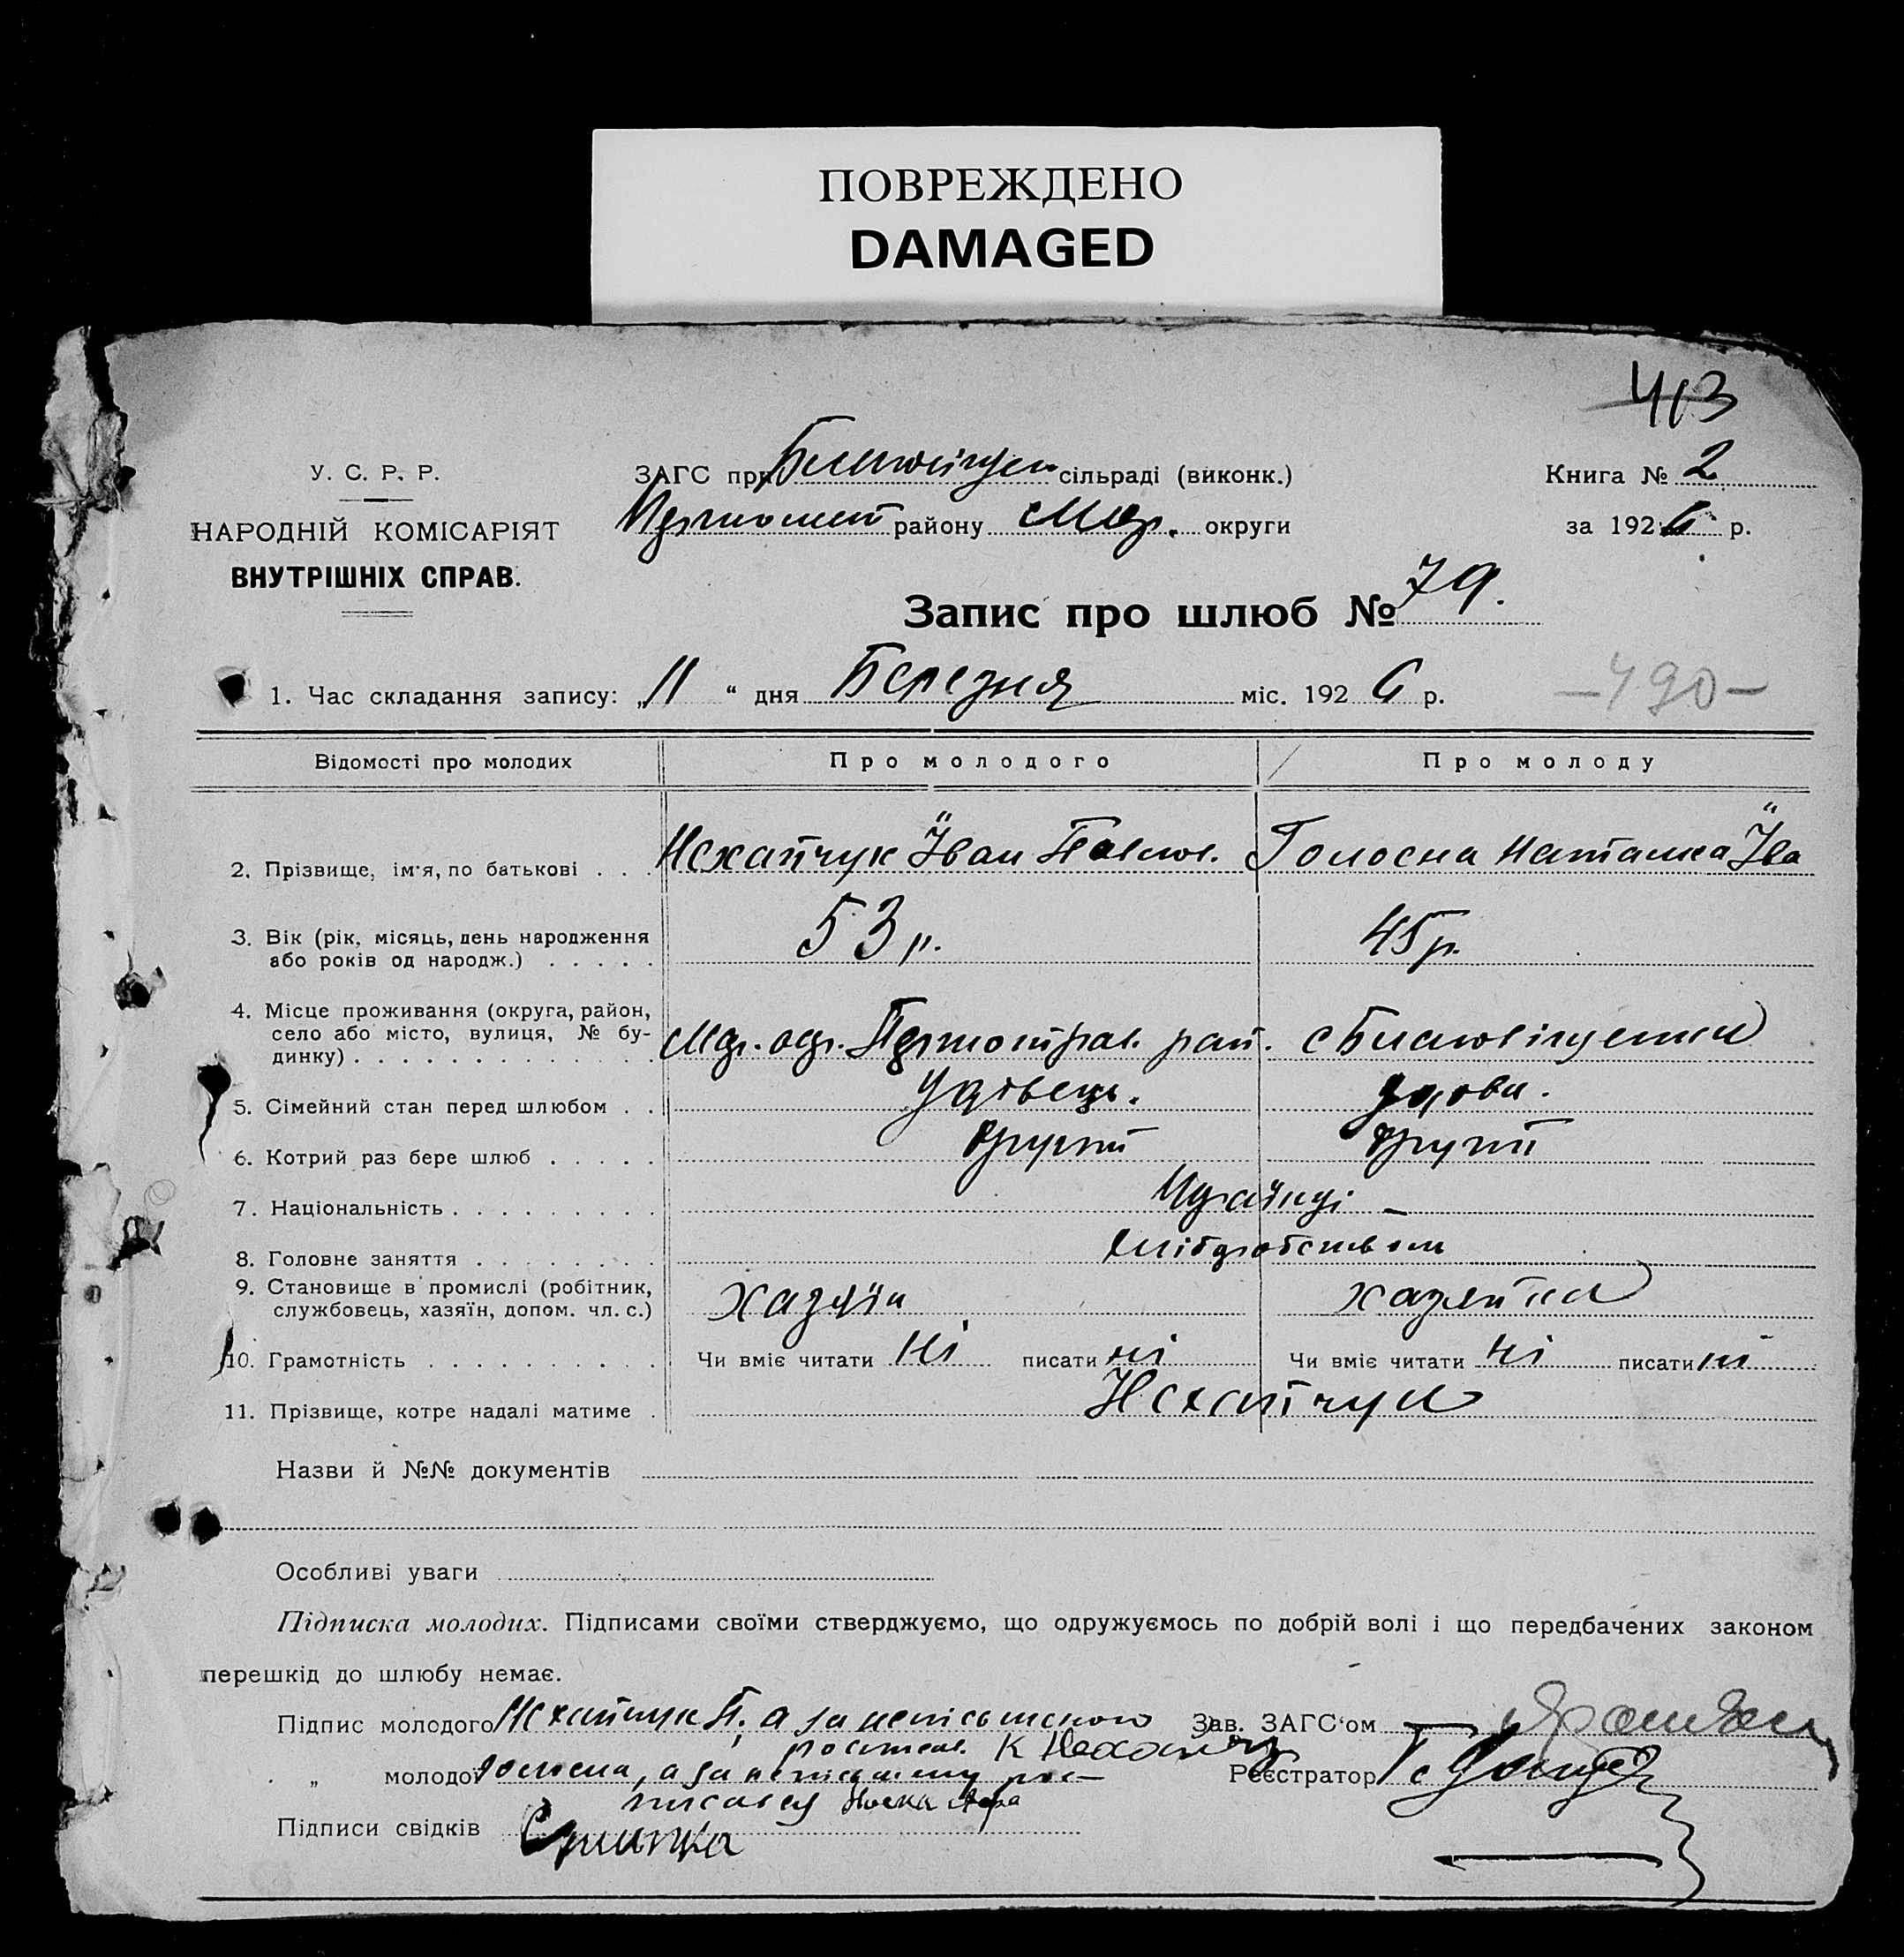 ПОВРЕЖДЕНО
DAMAGED
413
У. С. Р. Р.
НАРОДНІЙ КОМІСАРІЯТ
ВНУТРІШНІХ СПРАВ.
ЗАГС при сільраді (виконк.)
району округи
Книга № 2
за 1926 р.
Запис про шлюб № 79.
1. Час складання запису: „11 “ дня Березня міс. 1926 р.
-490-
Відомості про молодих Про молодого Про молоду
2. Прізвище, ім'я, по батькові . . . Нехайчук Іван Павлов. Голосна Наталка Іва
3. Вік (рік, місяць, день народження
або років од народж.) . . . . . 53 р. 45 р.
4. Місце проживання (округа, район,
село або місто, вулиця, № бу-
динку) . . . . . . . . . . . . . рай. с
5. Сімейний стан перед шлюбом . . Удівець. Удова.
6. Котрий раз бере шлюб . . . . . другий другий
7. Національність . . . . . . . . . Українці –
8. Головне заняття . . . . . . . . хліборобством
9. Становище в промислі (робітник,
службовець, хазяїн, допом. чл. с.) хазяїн хазяйка
10. Грамотність . . . . . . . . . . Чи вміє читати ні писати ні Чи вміє читати ні писати ні
11. Прізвище, котре надалі матиме . Нехайчук
Назви й №№ документів
Особливі уваги
Підписка молодих. Підписами своїми стверджуємо, що одружуємось по добрій волі і що передбачених законом
перешкід до шлюбу немає.
Підпис молодого Нехайчук а за неписьменого Зав. ЗАГС'ом
„ молодої Голосна, а за неписьмену рос- Реєстратор
писався
Підписи свідків